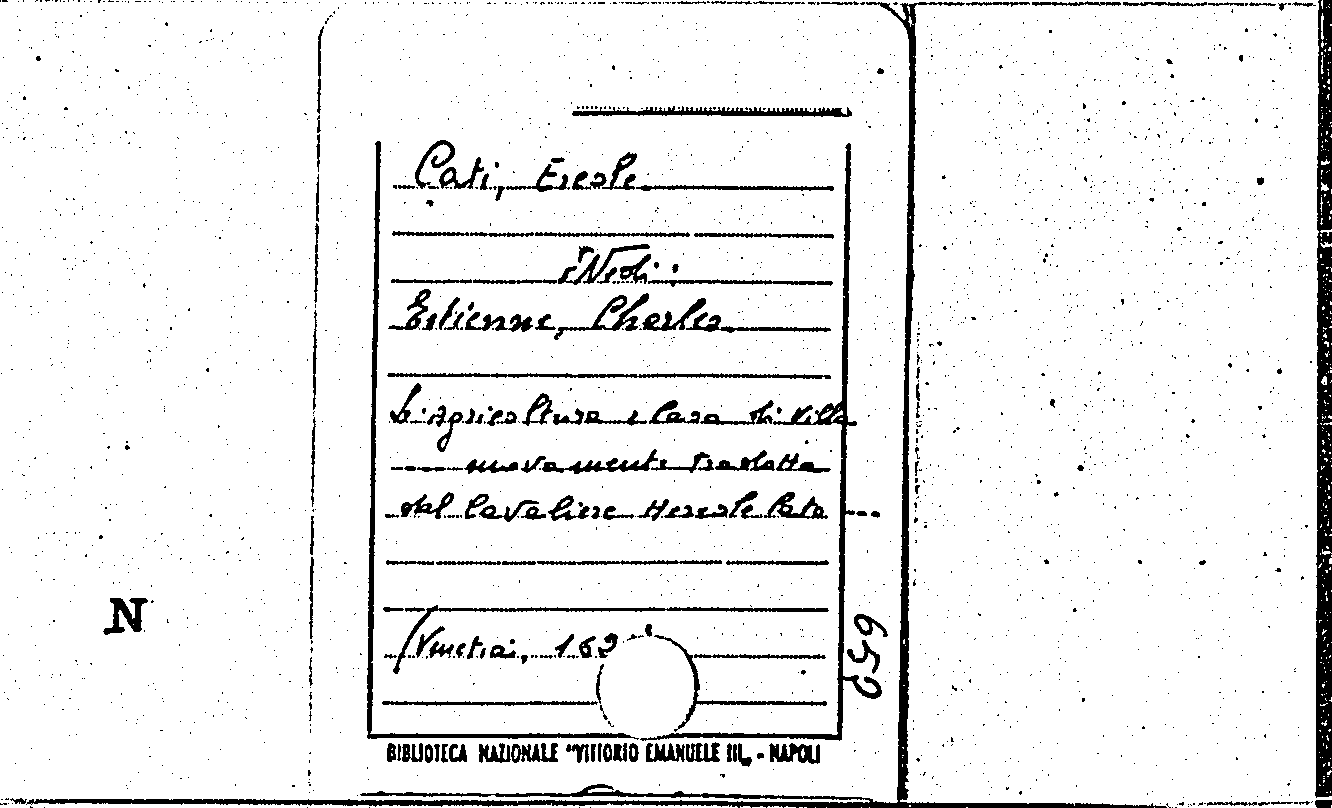 Cati, Ercole.
Vedi:
Estienne, Charles.
L'Agricoltura e Casa di Villa
---- nuovamente tradotta
dal Cavaliere Hercole Cato ---
Venetia,
659
N
BIBLIOTECA NAZIONALE "VITTORIO EMANUELE III„ - NAPOLI